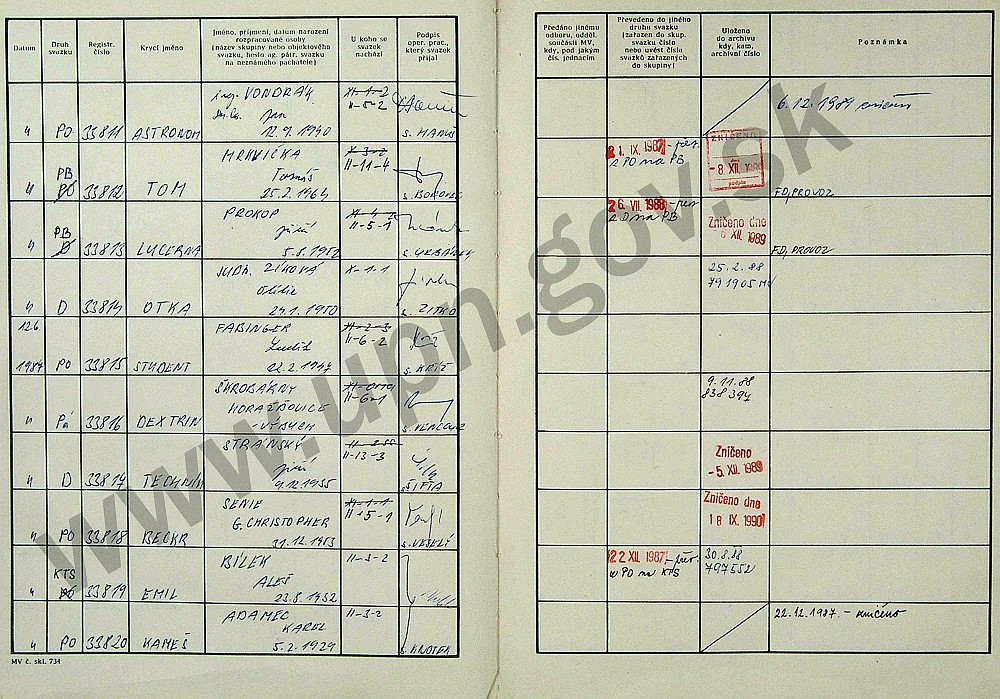 Datum
Druh svazku
Registr. číslo
Krycí jméno
Jméno, příjmení, datum narození rozpracované osoby (název skupiny nebo objektového svazku, heslo ag. pátr. svazku na neznámého pachatele)
U koho se svazek nachází
Podpis oper. prac., který svazek přijal
Předáno jinému odboru, odděl. součásti MV, kdy, pod jakým čís. jednacím
Převedeno do jiného druhu svazku (zařazen do skup. svazku číslo nebo uvést číslo svazků zařazených do skupiny)
Uloženo do archívu kdy, kam, archivní číslo
Poznámka
ing. VONDRÁK
Jan
" PO 33811 ASTRONOM 12.9.1940
II-5-2
s. HANUŠ
6.12.1989 zničen
MRKVIČKA
PB Tomáš
" PO 33812 TOM 25.2.1964
X-3-2
II-11-4
21. IX. 1987 - přer.
z PO na PB
ZNIČENO
- 8. XII.
podpis
FD, PROVOZ
PROKOP
PB Jiří
" 33813 LUCERNA 5.8.1952
II-5-1
s. URBÁNEK
26. VII. 1988 - přer
z D na PB
Zničeno dne
XII. 1989
FD, PROVOZ
JUDR. ZÍKOVÁ
Otilie
" D 33814 OTKA 24.1.1950
X-1-1
s. ZITKO
25.2.88
791905 MV
12.6
FABINGER
Luděk
1987 PO 33815 STUDENT 22.2.1947
XI-2-3
II-6-2
s. KŘÍŽ
ŠKROBÁRNY
HORAŽĎOVICE
" Pá 33816 DEXTRIN
II-6-1
9.11.88
838394
STRÁNSKÝ
Jiří
" D 33817 TECHNIK 9.12.1955
II-13-3
s. ŠIFTA
Zničeno
- 5. XII. 1989
SENIE
G. CHRISTOPHER
" PO 33818 BECKR 31.12.1953
XI-1-1
II-5-1
s. VESELÝ
Zničeno dne
18 IX. 1990
BÍLEK
KTS ALEŠ
" PO 33819 EMIL 23.8.1952
II-3-2
22. XII. 1987 - přer.
z PO na KTS
30.8.88
797552
ADAMEC
KAREL
" PO 33820 KAMEŠ 5.2.1929
II-3-2
s. KNOTEK
22.12.1987 - zničeno
MV č. skl. 734
www.upn.gov.sk